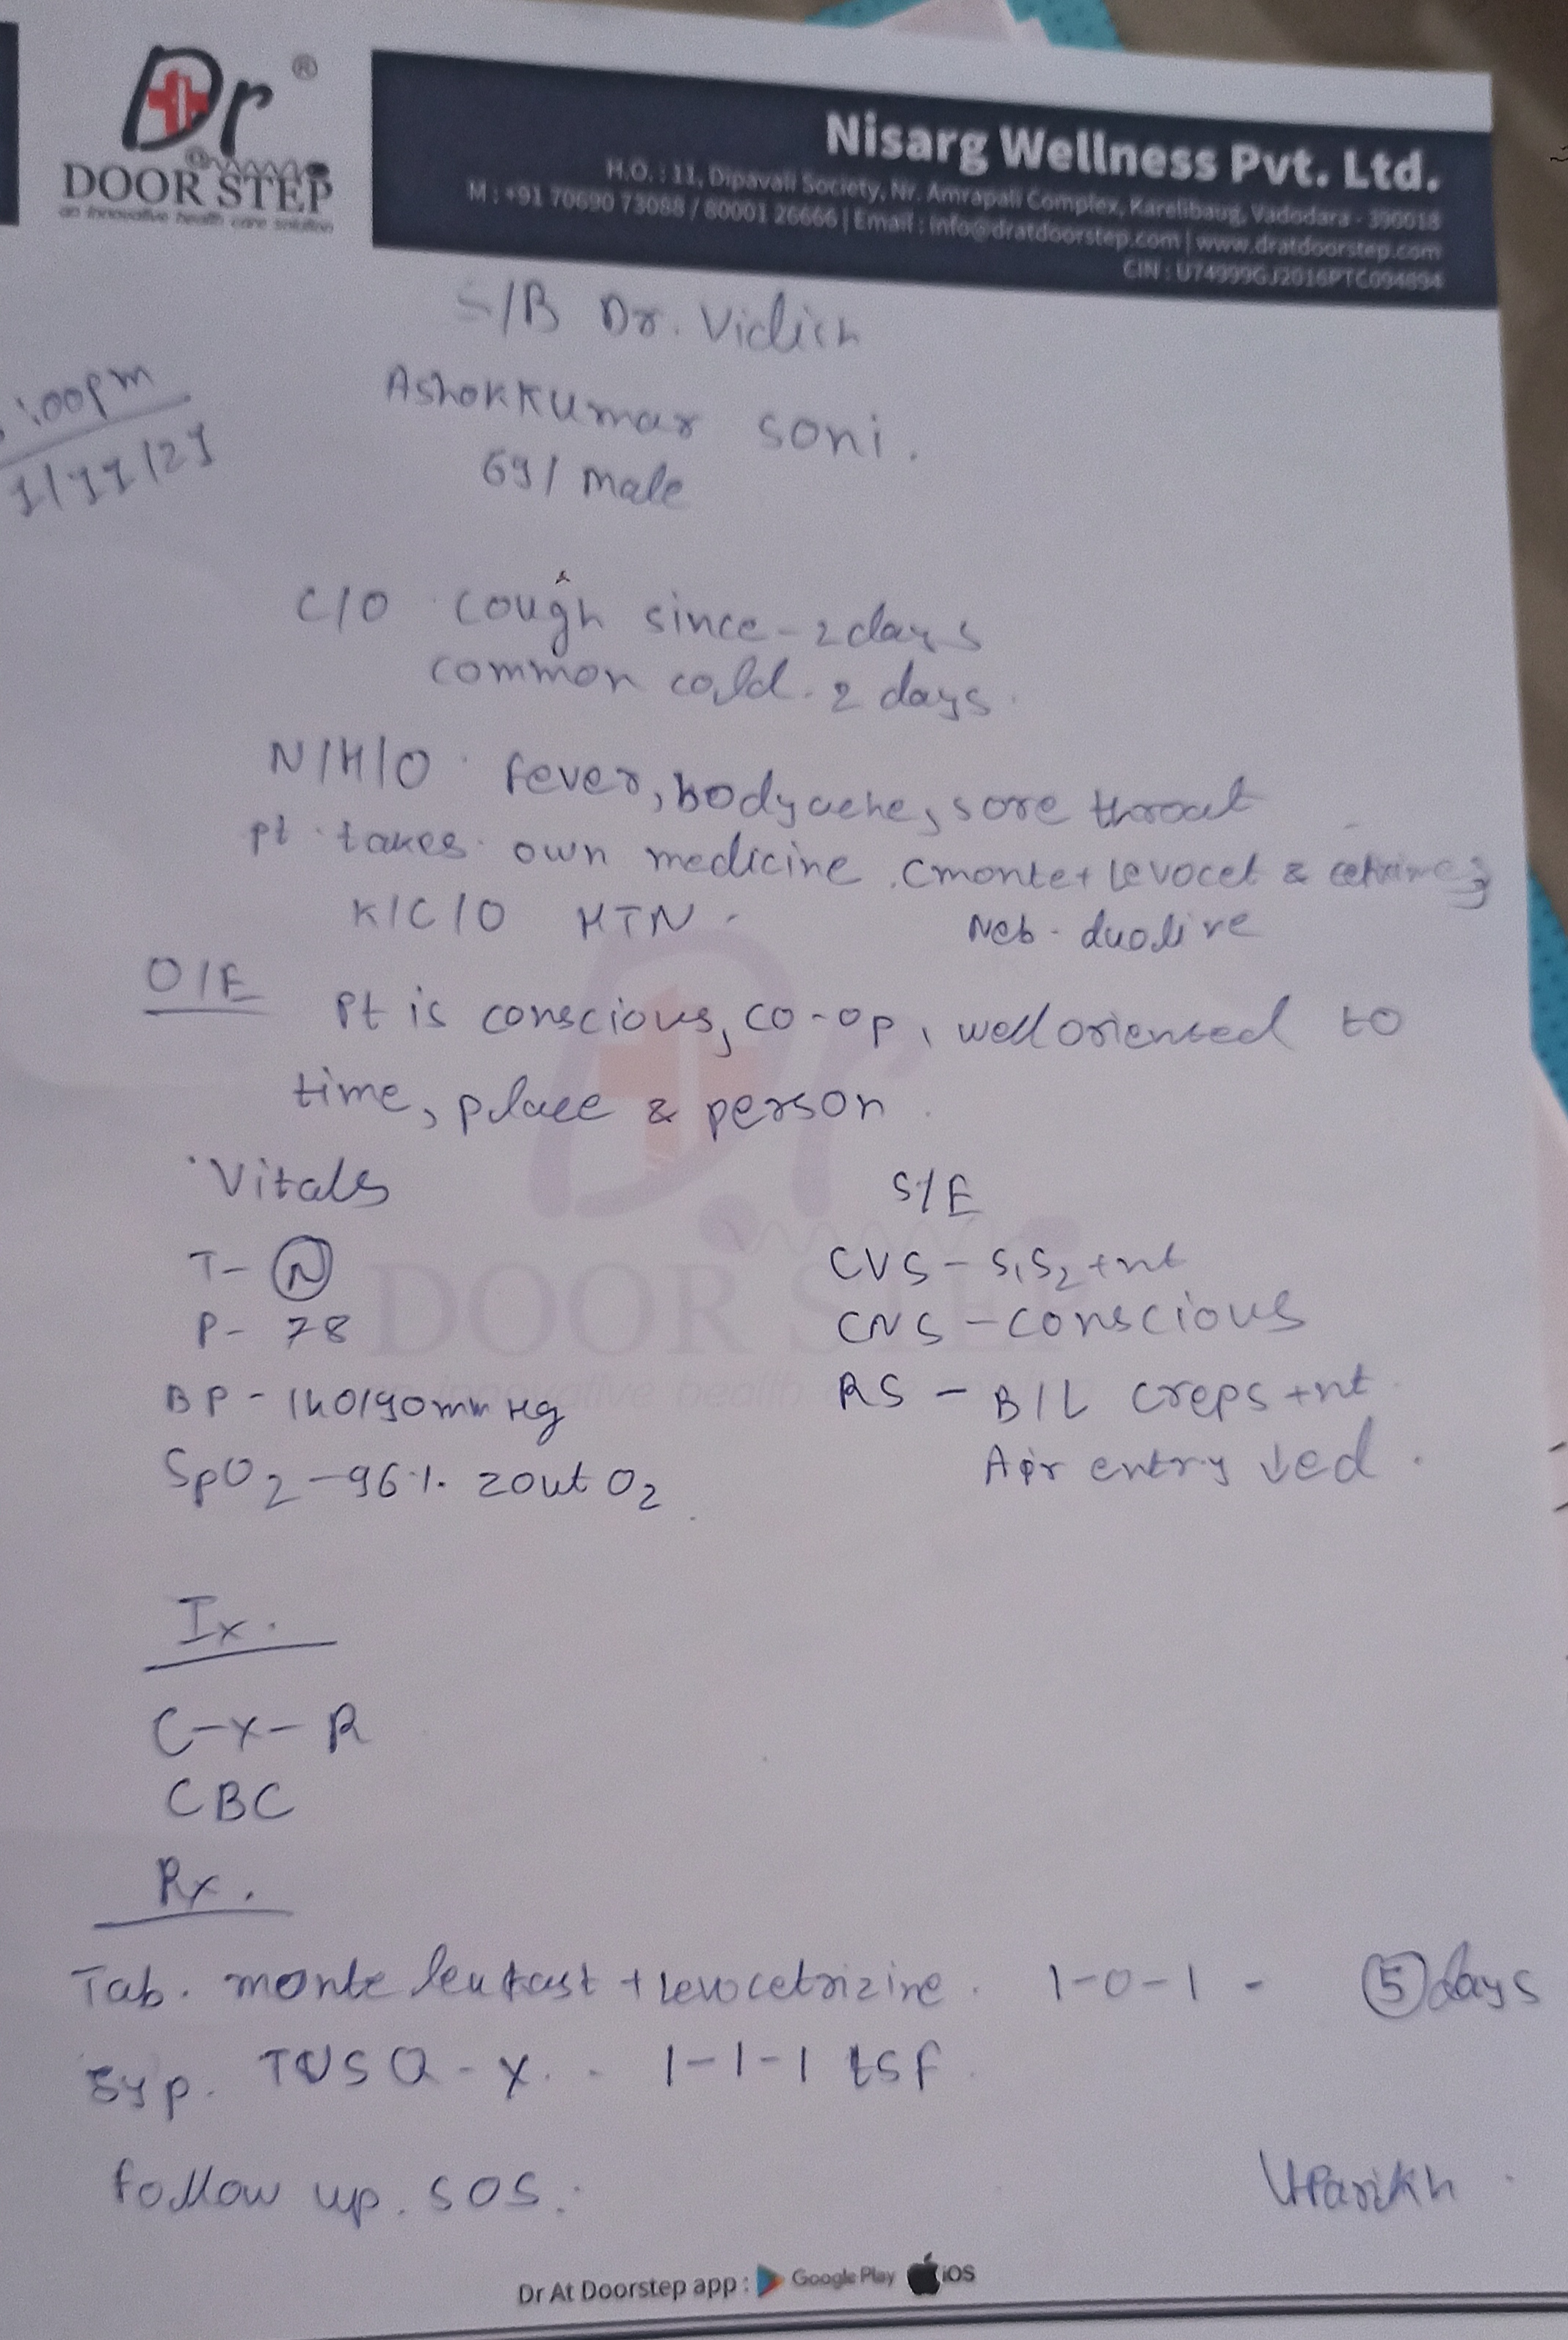 Dr ®
@
DOOR STEP
an innovative health care solution
Nisarg Wellness Pvt. Ltd.
H.O. : 11, Dipavali Society, Nr. Amrapali Complex, Karelibaug, Vadodara - 390018
M : +91 70690 73088 / 80001 26666 | Email : info@dratdoorstep.com | www.dratdoorstep.com
CIN : U74999GJ2016PTC094894
S/B Dr. Vidish
:00pm
Ashokkumar soni.
1/11/21
69/ male
C/O cough since - 2 days
common cold. 2 days.
N/H/O fever, bodyache, sore throat
pt takes own medicine. (monte + Levocet &
K/C/O HTN
Neb - duoli re
O/E pt is conscious, co-op, well oriented to
time, place & person.
Vitals S/E
T- N CVS - S1S2 +nt
P- 78 CNS - conscious
BP - 140/90 mm Hg RS - B/L creps +nt
SpO2 - 96% zout O2 Air entry ↓ed.
Ix.
C-x-R
CBC
Rx.
Tab. monte leukast + levocetrizine. 1-0-1 - 5 days
Syp. TUSQ-X. 1-1-1 tsf
follow up. SOS.
VParikh
Dr At Doorstep app : Google Play iOS